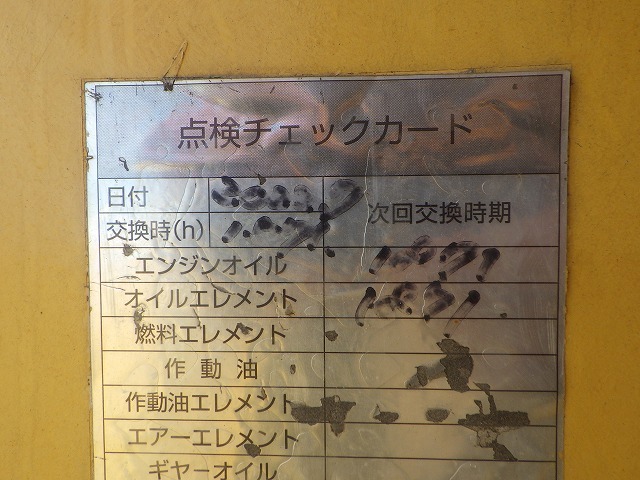 点検チェックカード
日付
交換時(h)
次回交換時期
エンジンオイル
オイルエレメント
燃料エレメント
作動油
作動油エレメント
エアーエレメント
ギヤーオイル